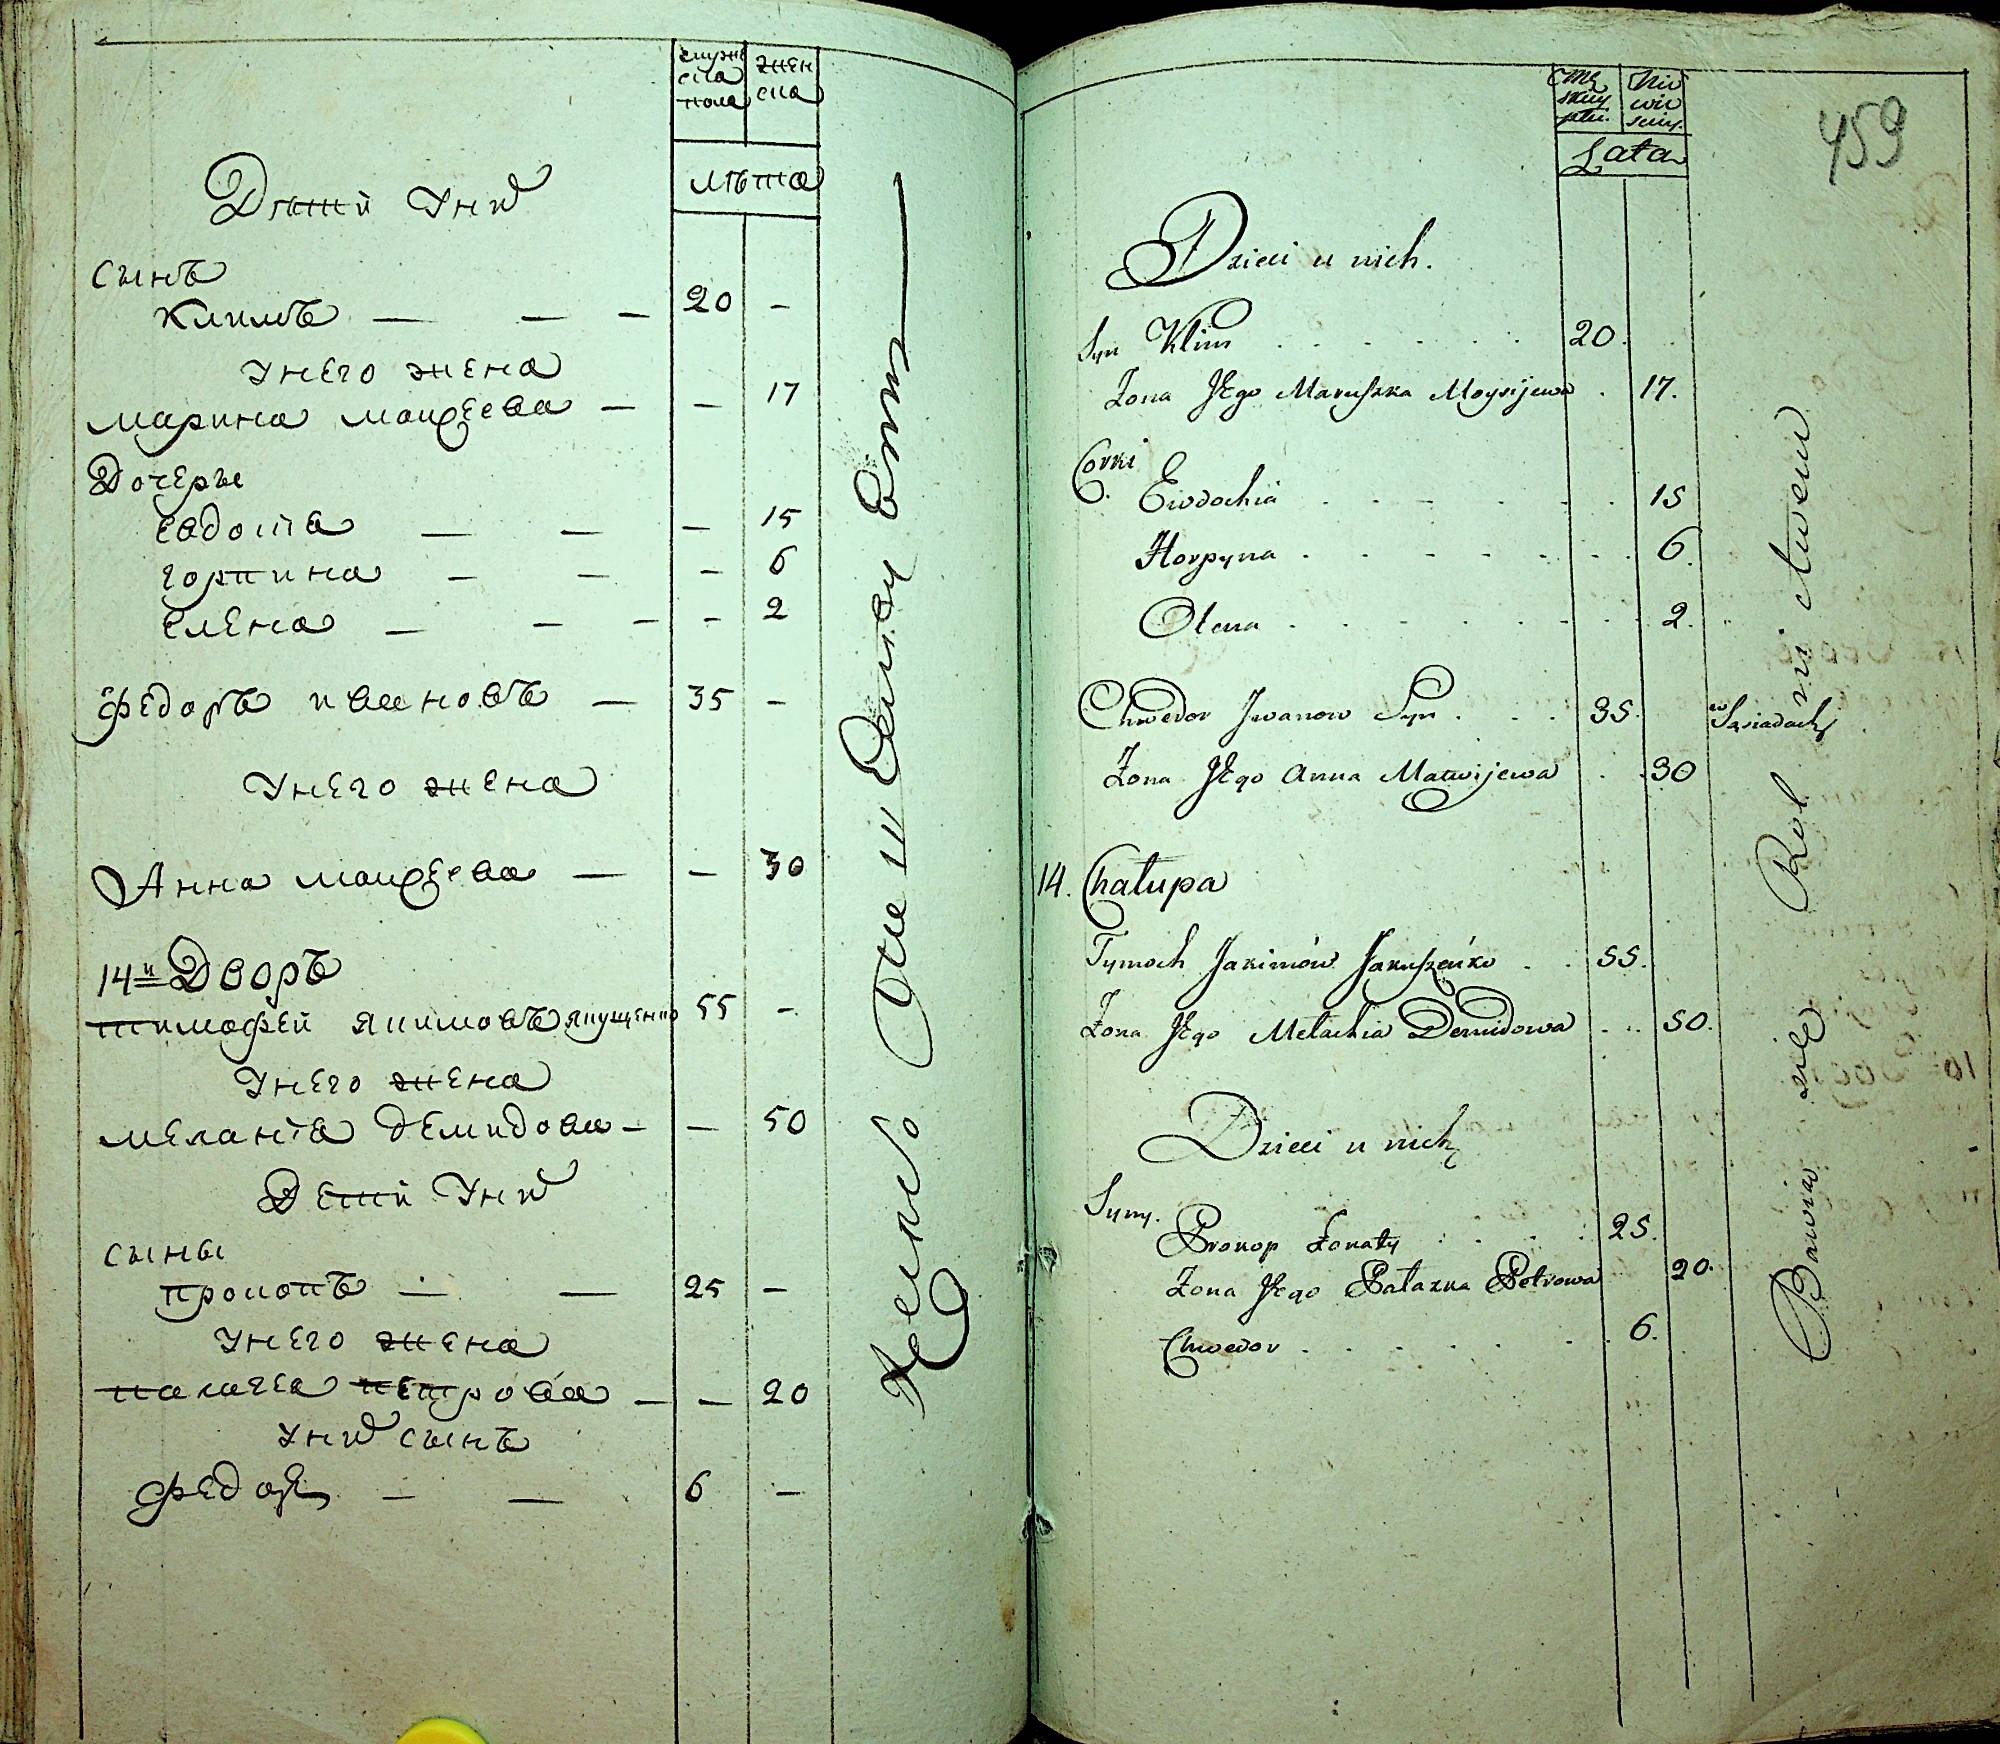 мужеска пола
женска
лѣта
Дѣти у них
сынъ
Климъ — — — 20 —
у него жена
марина моисеева — — 17
Дочеры
евдокiа — — — 15
горпина — — — 6
елена — — — — 2
федоръ ивановъ — 35 —
у него жена
Анна моисеева — — 30
14й Дворъ
тимофей якимовъ якущенко 55 —
у него жена
меланiа демидова — — 50
Дети у них
сыны
прокопъ — — 25 —
у него жена
палагеа петрова — — 20
у них сынъ
федоръ — — 6 —
459
Męskiey płci.
Niewieściey.
Lata
Dzieci u nich.
Syn Klim . . . . . . 20.
Żona Jego Maruszka Moysijewa . 17.
Corki
Ewdochia . . . . . . 15
Horpyna . . . . . . . 6.
Olena . . . . . . . . 2.
Chwedor Iwanow Syn . . . 35. w Sąsiadach
Żona Jego Anna Matwijewa . . 30
14. Chałupa
Tymoch Jakimów Jakuszeńko . . 55.
Żona Jego Mełachia Demidowa . . . 50.
Dzieci u nich
Syny.
Prokop żonaty . . . . 25.
Żona Jego Pałazka Petrowa 20.
Chwedor . . . . . . . 6.
Bawia się Rol nictwem